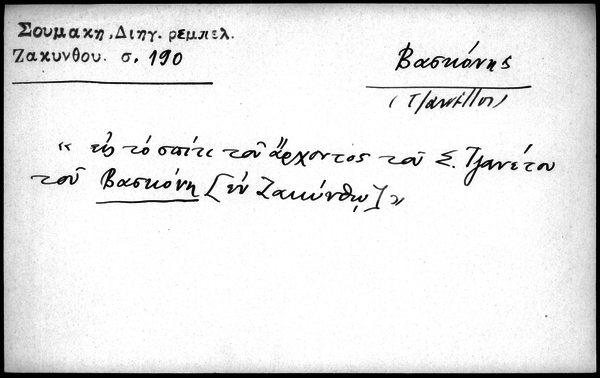 Σουμακη, Διηγ. ρεμπελ.
Ζακυνθου. σ. 190
Βασκόνης
« εἰς τό σπίτι τοῦ ἄρχοντος τοῦ Σ. Τζανέτου
τοῦ Βασκόνη [ἐν Ζακύνθῳ] »